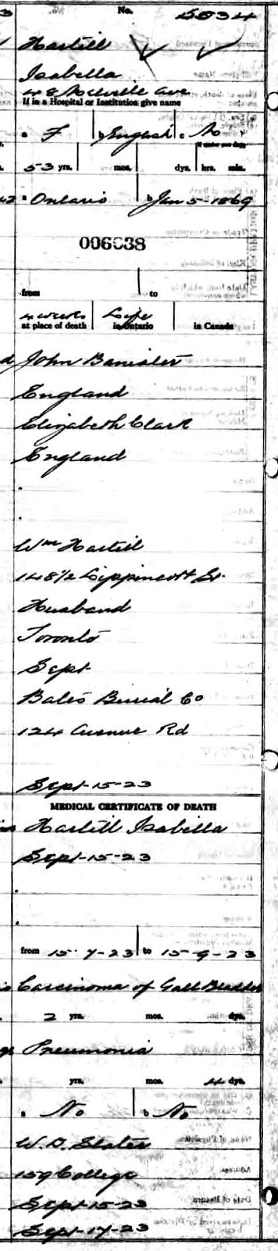 No. 5034
Hartill
Isabella
48 Melville Ave
If in a Hospital or Institution give name
a. F b. English c. No
If under one day,
53 yrs. mos. dys. hrs. min.
a Ontario b Jan 5-1869
006838
from to
4 weeks Life
at place of death in Ontario in Canada
John Banister
England
Elizabeth Clark
England
Wm Hartill
148 1/2 Lippincott St.
Husband
Toronto
Sept
Bates Burial Co
124 Avenue Rd
Sept-15-23
MEDICAL CERTIFICATE OF DEATH
Hartill Isabella
Sept-15-23
from 15-7-23 to 15-9-23
Carcinoma of Gall Bladder
2 yrs. mos. dys.
Pneumonia
yrs. mos. 4 dys.
a. No b No
W. D. Slater
159 College
Sept-15-23
Sept-17-23